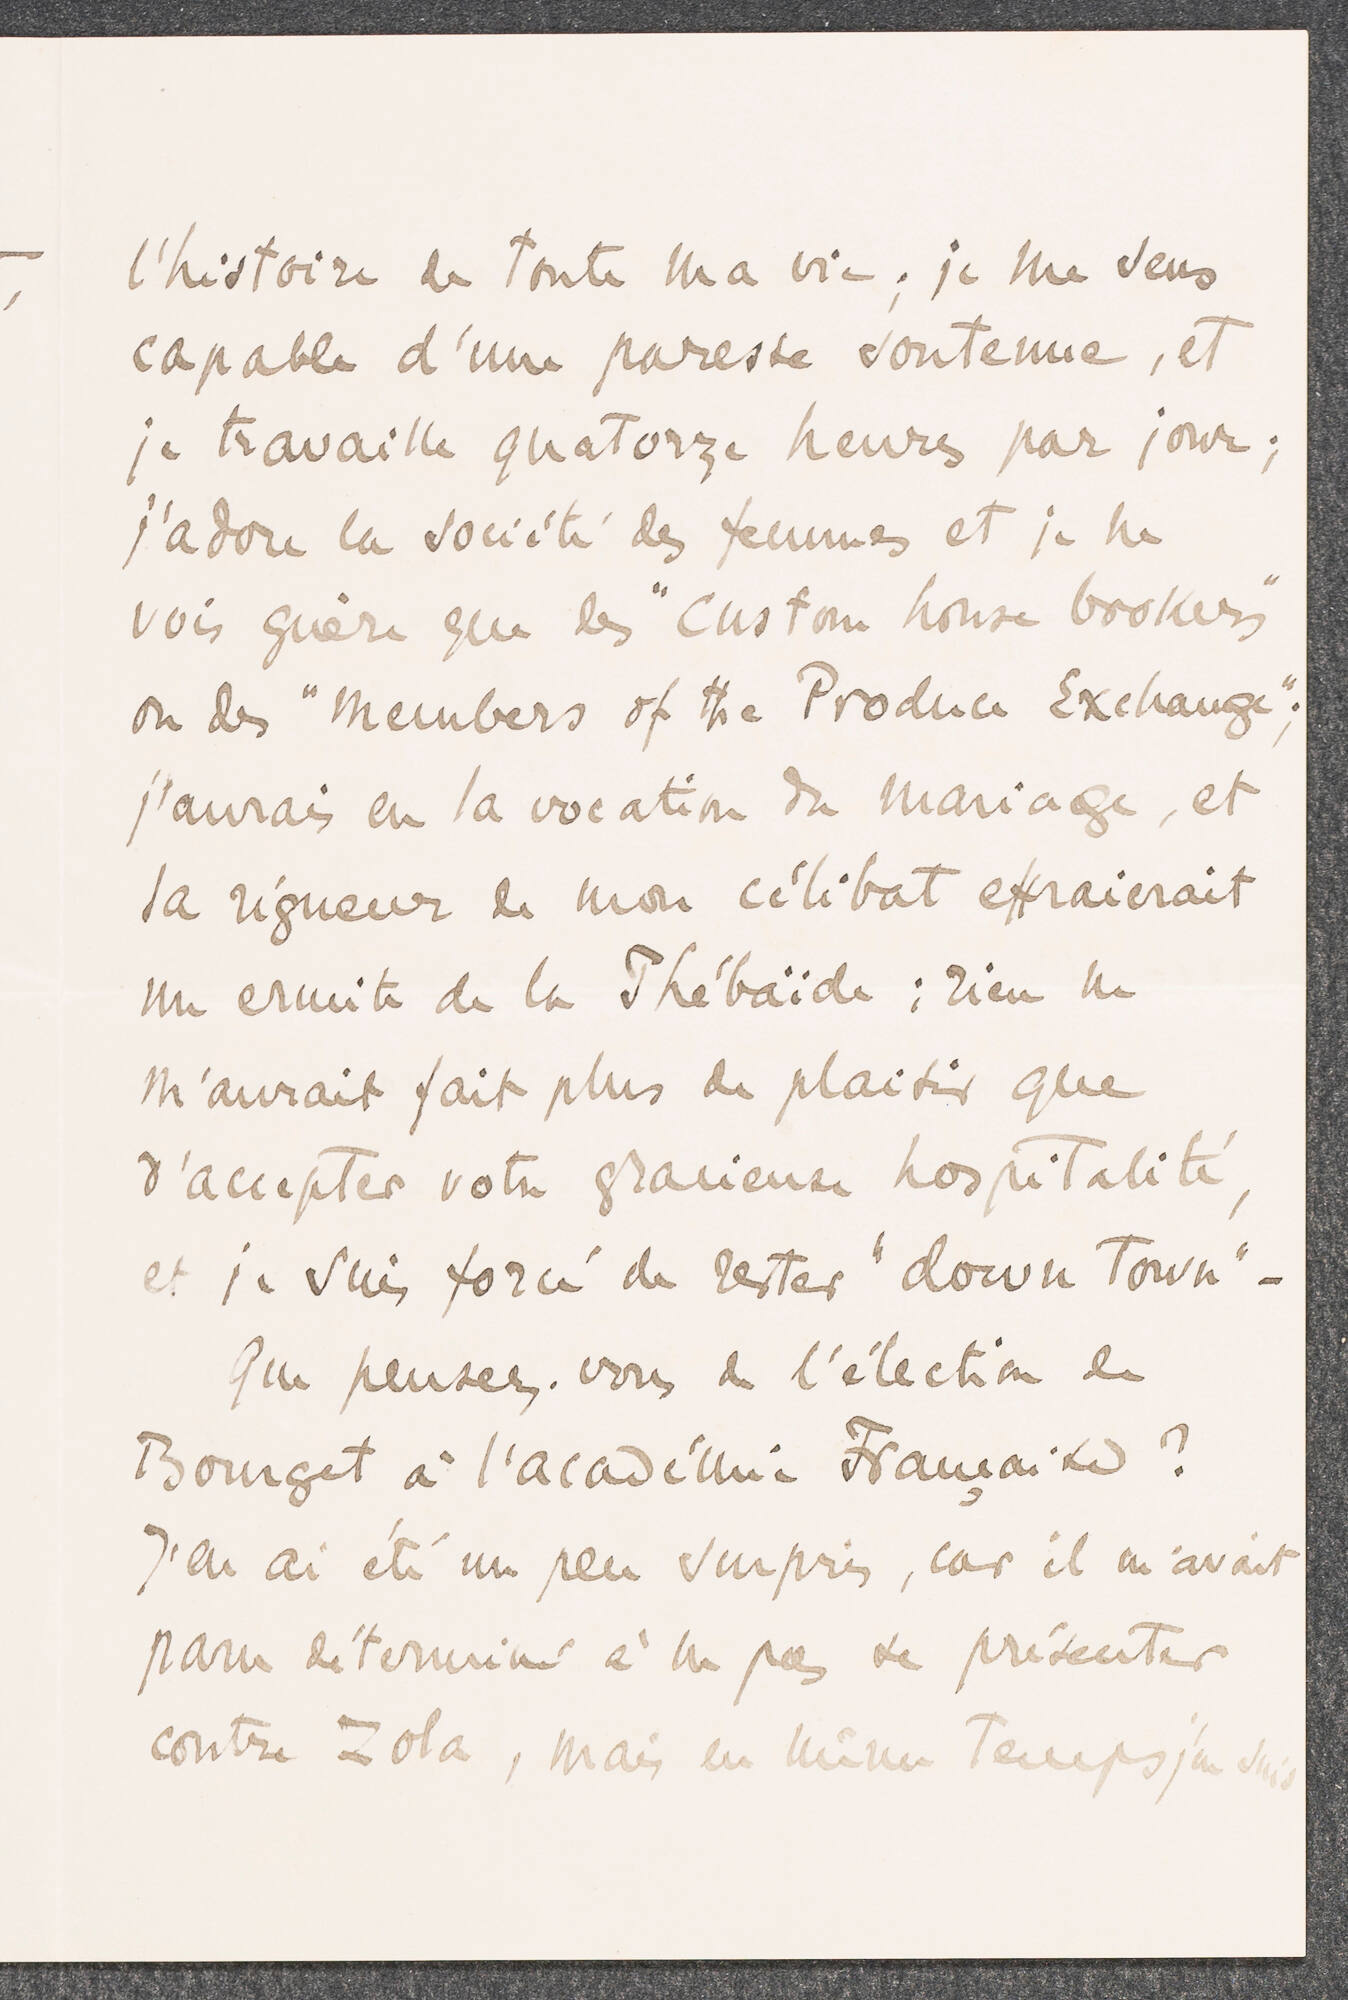 l'histoire de toute ma vie ; je me sens
capable d'une paresse soutenue, et
je travaille quatorze heures par jour ;
j'adore la société des femmes et je ne
vois guère que des "Custom house brokers"
ou des "Members of the Produce Exchange";
j'aurais eu la vocation du mariage, et
la rigueur de mon célibat effraierait
un ermite de la Thébaïde ; rien ne
m'aurait fait plus de plaisir que
d'accepter votre gracieuse hospitalité,
et je suis forcé de rester "down Town" -
Que pensez-vous de l'élection de
Bourget à l'académie Française ?
J'en ai été un peu surpris, car il m'avait
paru déterminé à ne pas se présenter
contre Zola, mais en même Temps j'en suis